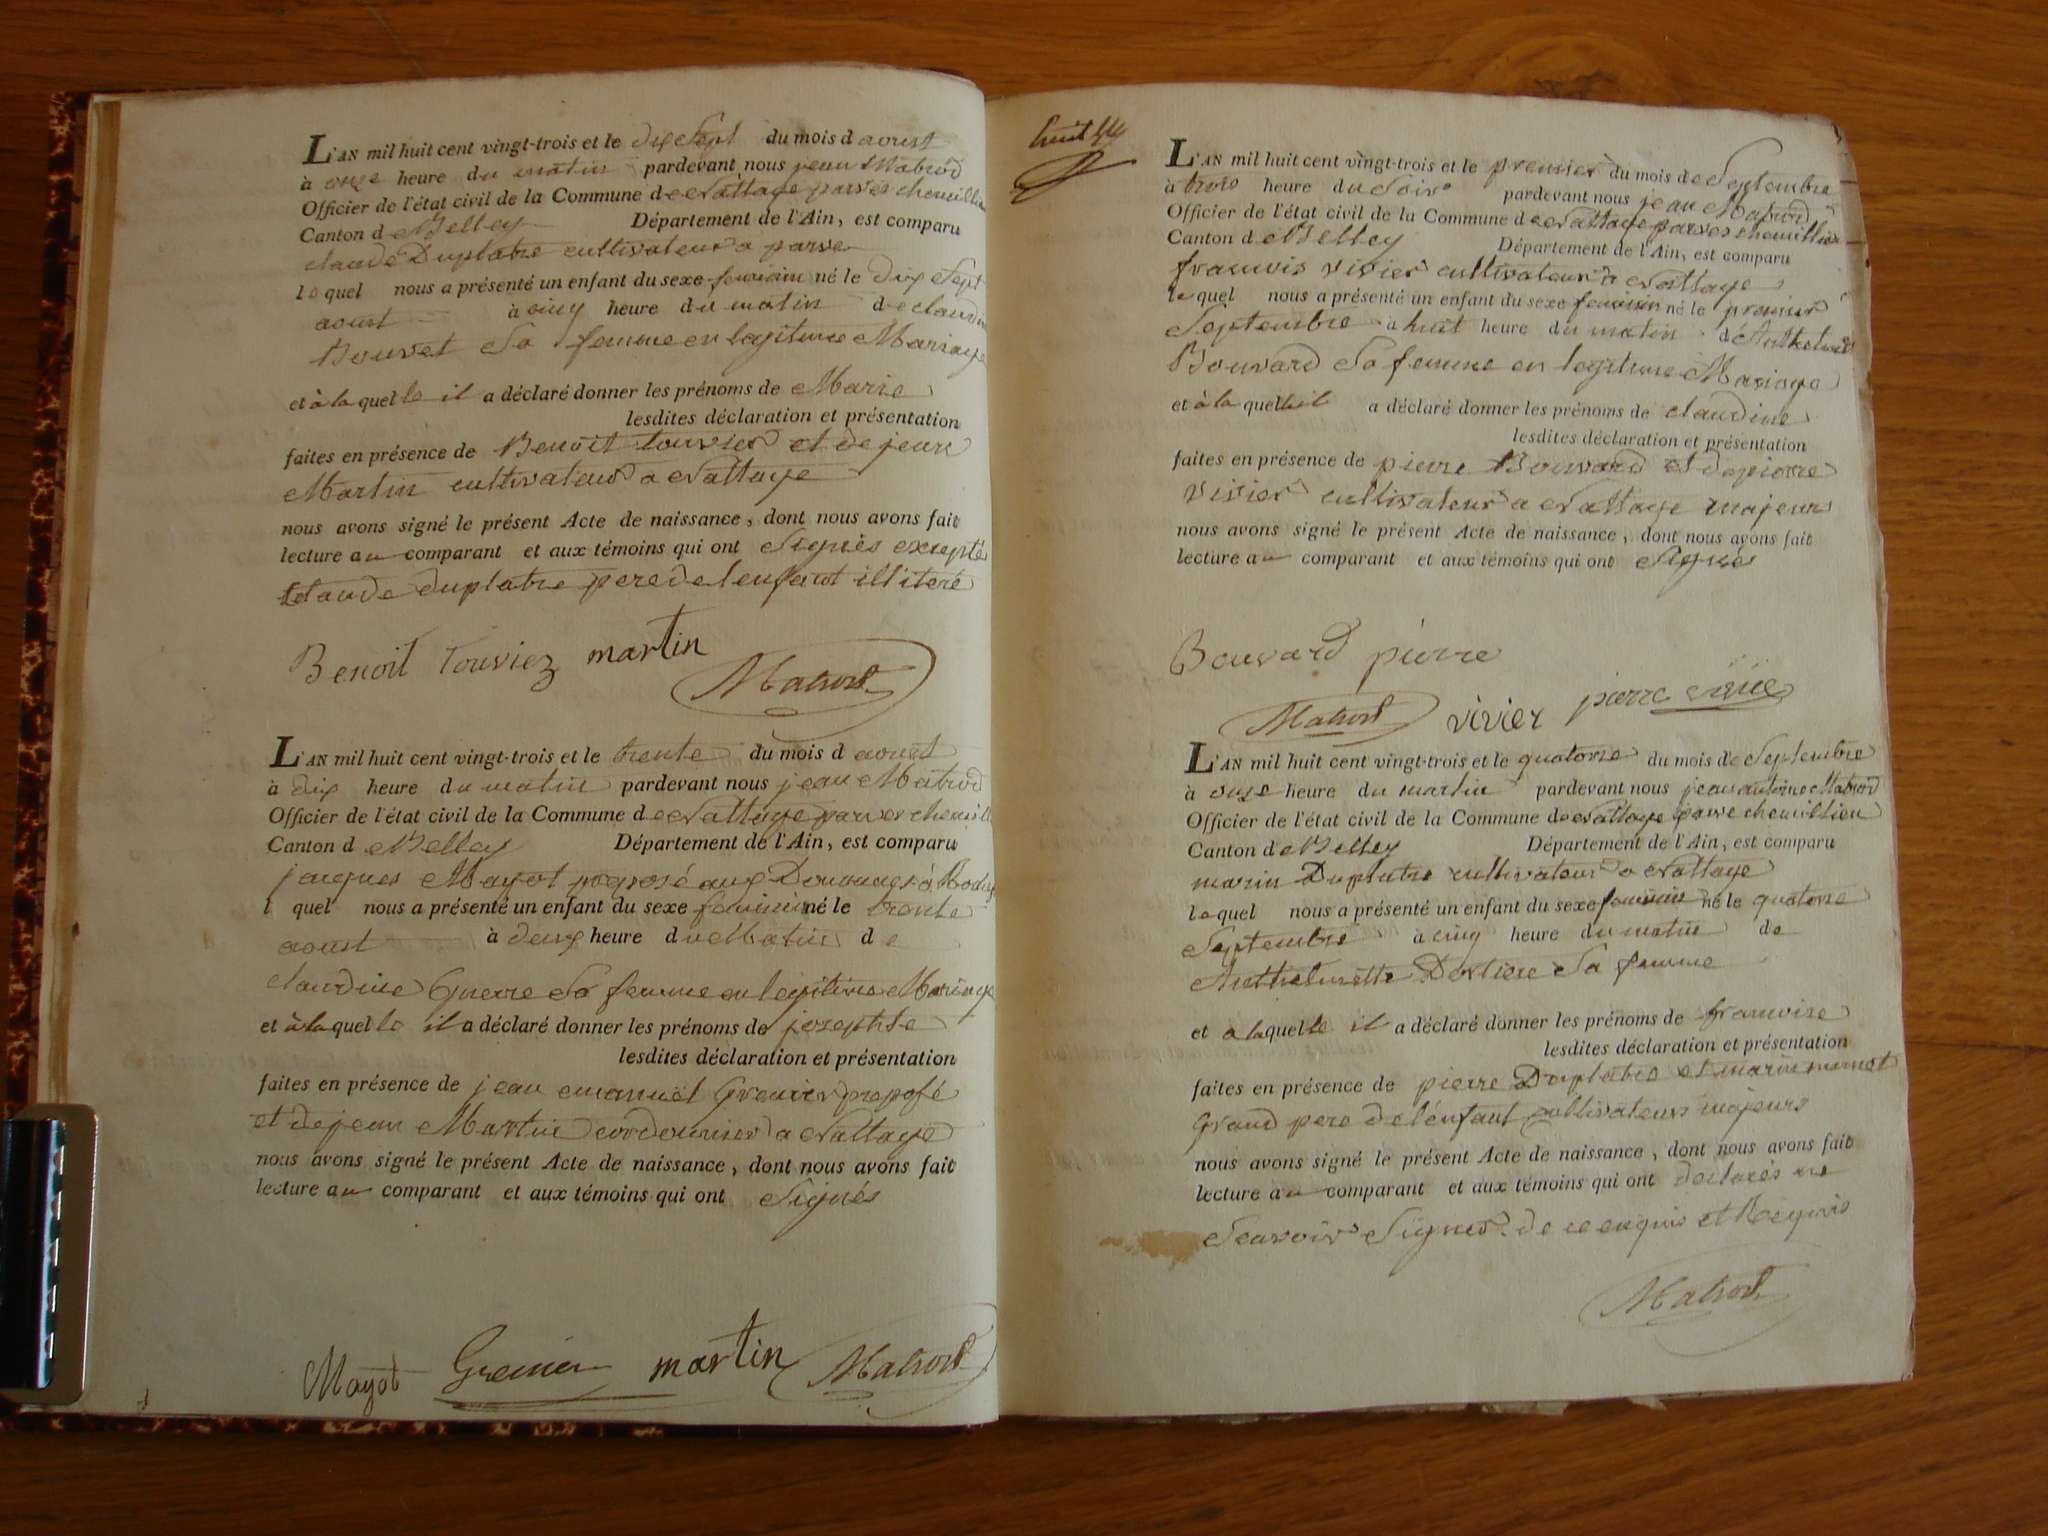 L'AN mil huit cent vingt-trois et le dix Sept du mois d aoust
à onze heure du matin pardevant nous jean Matrod
Officier de l'état civil de la Commune de Nattage parves
Canton d Belley Département de l'Ain, est comparu
claude Duplatre cultivateur a parve
le quel nous a présenté un enfant du sexe feminin né le dix Sept
aoust à cinq heure du matin de
Bouvet Sa femme en legitime Mariage
et à la quelle il a déclaré donner les prénoms de Marie
lesdites déclaration et présentation
faites en présence de Benoit touvier et de jean
Martin cultivateur a Nattage
nous avons signé le présent Acte de naissance, dont nous avons fait
lecture au comparant et aux témoins qui ont Signés excepté
Claude duplatre pere de lenfant illiteré
Benoit Touviez martin
Matrod
L'AN mil huit cent vingt-trois et le trente du mois d aoust
à dix heure du matin pardevant nous jean Matrod
Officier de l'état civil de la Commune de Nattage parves
Canton d Belley Département de l'Ain, est comparu
jacques Mayot preposé aux Douanes à
l quel nous a présenté un enfant du sexe feminin né le trente
aoust à deux heure du Matin de
claudine Guerre Sa femme en legitime Mariage
et à la quelle il a déclaré donner les prénoms de josephte
lesdites déclaration et présentation
faites en présence de jean emanuel Grenier preposé
et de jean Martin cordonnier a Nattage
nous avons signé le présent Acte de naissance, dont nous avons fait
lecture au comparant et aux témoins qui ont Signés
Mayot Grenier martin Matrod
L'AN mil huit cent vingt-trois et le premier du mois de Septembre
à trois heure du Soir pardevant nous jean Matrod
Officier de l'état civil de la Commune de Nattage parves
Canton d Belley Département de l'Ain, est comparu
francois vivier cultivateur a Nattage
le quel nous a présenté un enfant du sexe feminin né le premier
Septembre a huit heure du matin d
Bouvard Sa femme en legitime Mariage
et à la quelle il a déclaré donner les prénoms de claudine
lesdites déclaration et présentation
faites en présence de pierre Bouvard et de pierre
vivier cultivateur a Nattage majeur
nous avons signé le présent Acte de naissance, dont nous avons fait
lecture au comparant et aux témoins qui ont Signés
Bouvard pierre
Matrod vivier pierre
L'AN mil huit cent vingt-trois et le quatorse du mois de Septembre
à onze heure du martin pardevant nous jean antoine Matrod
Officier de l'état civil de la Commune de Nattage parve
Canton d Belley Département de l'Ain, est comparu
marin Duplatre cultivateur a Nattage
le quel nous a présenté un enfant du sexe feminin né le quatorse
Septembre à cinq heure du matin de
Anthelmette Sa femme
et a la quelle il a déclaré donner les prénoms de francoise
lesdites déclaration et présentation
faites en présence de pierre Duplatre et marin
Grand pere de l'enfant cultivateurs majeurs
nous avons signé le présent Acte de naissance, dont nous avons fait
lecture au comparant et aux témoins qui ont declarés ne
Scavoir Signer de ce enquis et Requis
Matrod